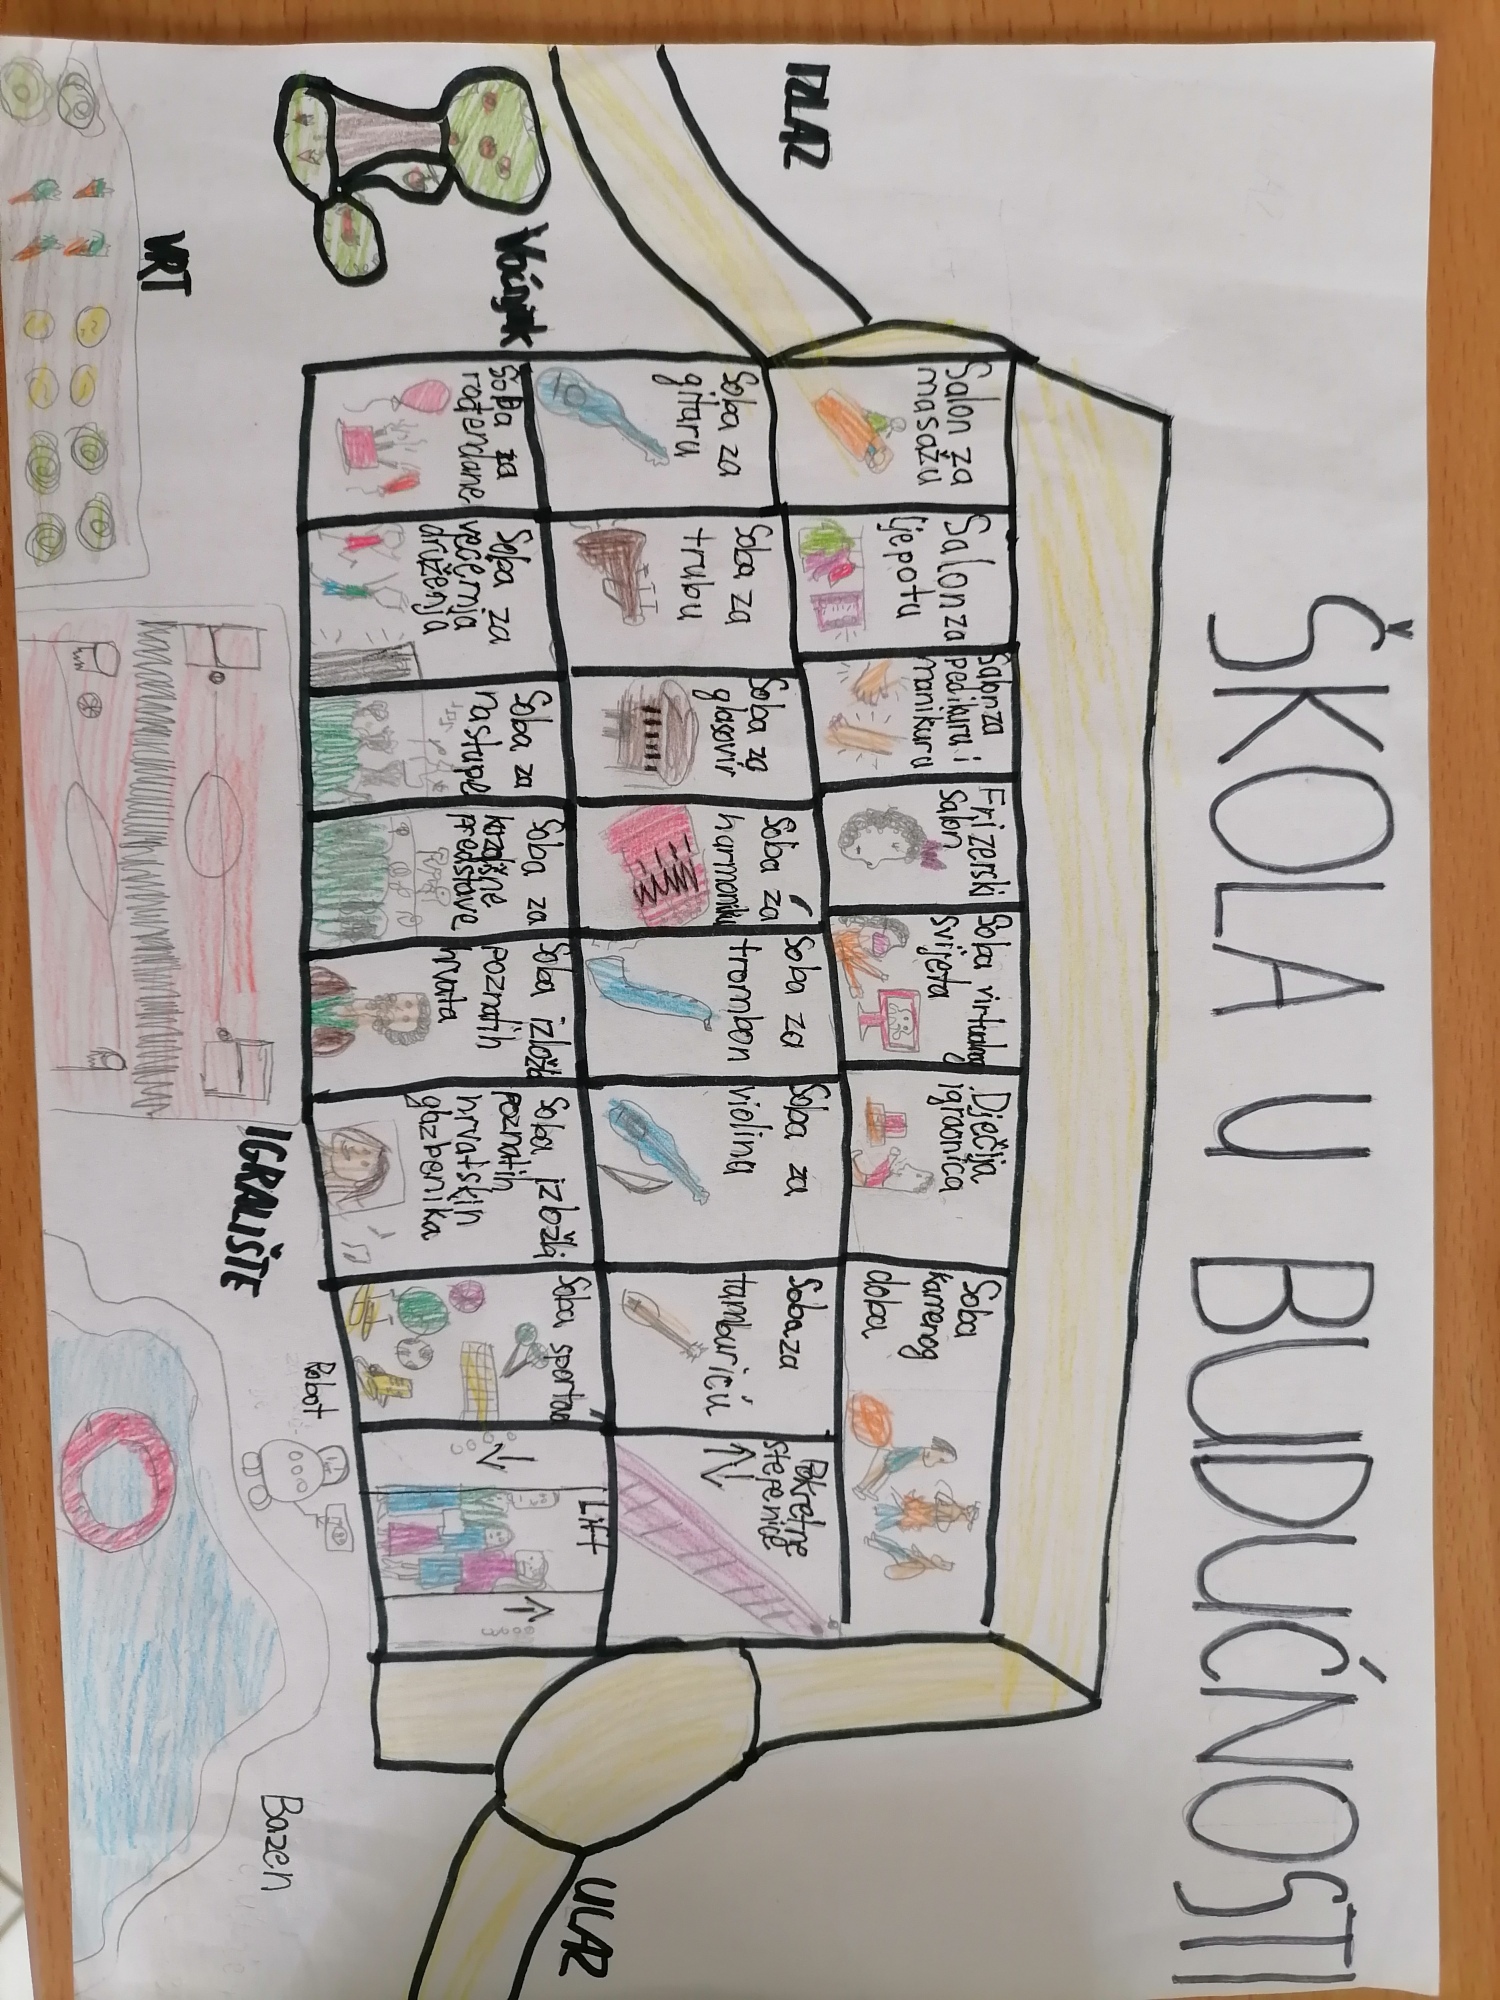 ŠKOLA U BUDUĆNOSTI
IZLAZ
Salon za
masažu
Salon za
ljepotu
Salon za
pedikuru i
manikuru
Frizerski
salon
Soba virtualnog
svijeta
Dječja
igraonica
Soba
kamenog
doba
Soba za
gitaru
Soba za
trubu
Soba za
glasovir
Soba za
harmoniku
Soba za
trombon
Soba za
violina
Soba za
tamburicu
Pokretne
stepenice
Voćnjak
Soba za
rođendane
Soba za
večernja
druženja
Soba za
nastupe
Soba za
kazališne
predstave
Soba izložbi
poznatih
hrvata
Soba izložbi
poznatih
hrvatskih
glazbenika
Soba sportova
Lift
ULAZ
VRT
IGRALIŠTE
Robot
Bazen